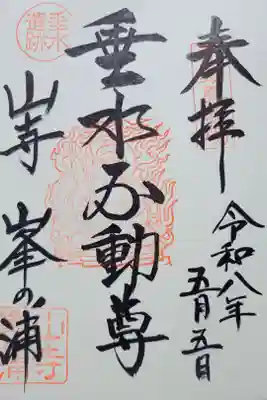 奉拝
令和八年
五月五日
垂水不動尊
垂水
遺跡
山寺
峯の浦